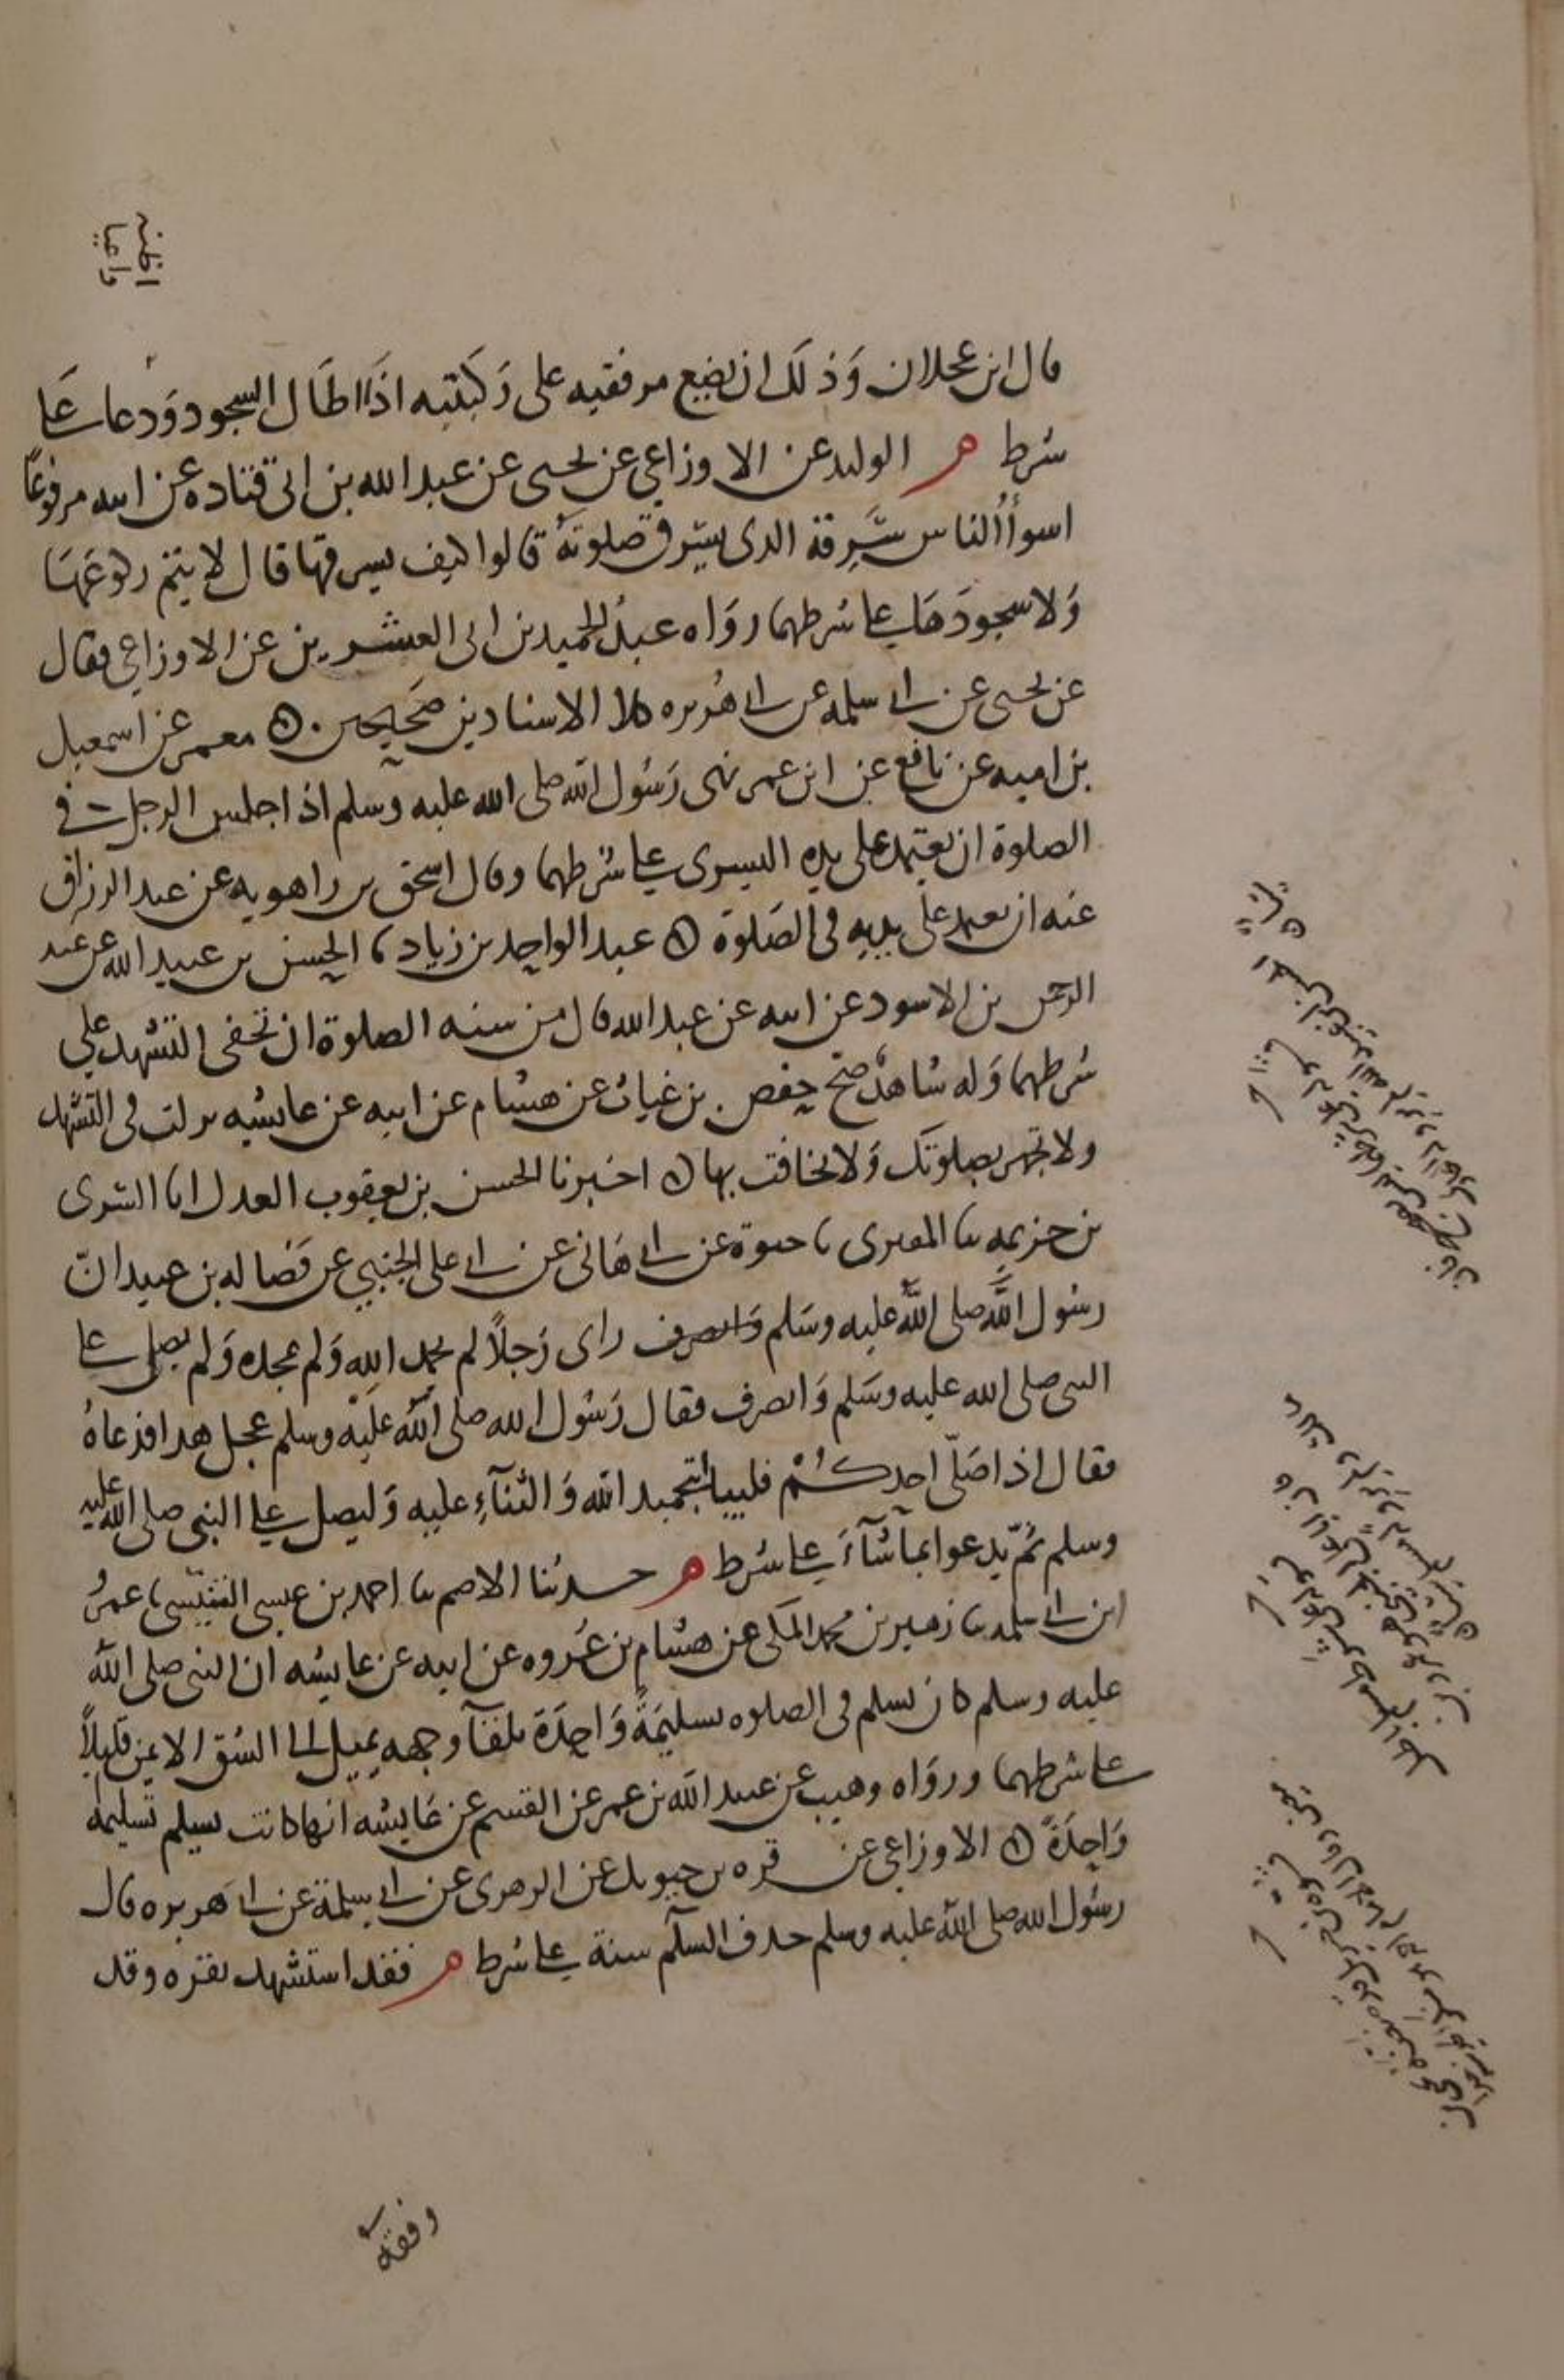 قال ابن عجلان وَذلَك ان يضع مرفقيه على رَكبتيه اذَا اطَال السجود وَدعا على
شرط م الوليد عن الاوزاعي عن يحيى عن عبد الله بن ابى قتاده عن ابيه مرفوعًا
اسوأ الناس سَرِقة الذى يسرق صلوتهُ قالوا كيف يسرقها قال لا يتم ركوعَها
وَلا سجودَها على شرطهما روَاه عبد الحميد بن ابى العشرين عن الاوزاعي فقال
عن يحيى عن ابى سلمه عن ابى هُريره كلا الاسنادين صَحيحين ه معمر عن اسمعيل
بن اميه عن نافع عن ابن عمر نهى رَسُول الله صلى الله عليه وسلم اذا جلس الرجل فى
الصلوة ان يعتمد على يده اليسرى على شرطهما وقال اسحق بن راهويه عن عبد الرزاق
عنه ان يعتمد على يديه فى الصَلوة ه عبد الواحد بن زياد ثنا الحسن بن عبيد الله عن عبد
الرحمن بن الاسود عن ابيه عن عبد الله قال من سنه الصلوة ان تخفى التشهد على
شرطهما وَله شاهدٌ صح حفص بن غياث عن هشام عن ابيه عن عايشه نزلت فى التشهد
ولا تجهر بصلوتَك وَلا تخافت بها ه اخبرنا الحسن بن يعقوب العدل انا السرى
بن خزيمه ثنا المقرى ثنا حيوة عن ابى هَانى عن ابى على الجنبي عن فَضاله بن عبيد انّ
رسُول الله صلى الله عليه وسَلم وَانصرف راى رَجلاً لم يحمد الله وَلم يمجده وَلم يصلى على
النبى صلى الله عليه وسَلم وَانصرف فقال رَسُول الله صلى الله عليه وسلم عجل هذا فدعاهُ
فقال اذا صَلّى احدكُمْ فليبدأ بتحميد الله وَالثنآءِ عليه وَليصل على النبى صلى الله عليه
وسلم ثمّ يدعوا بما شآءَ على شرط م حدثنا الاصم ثنا احمد بن عيسى التنيّسى ثنا عمرُ
ابن ابى سلمه ثنا زهير بن محمد المكى عن هشام بن عُروه عن ابيه عن عايشه ان النبى صلى الله
عليه وسلم كان يسلم فى الصلوه تسليمَةً وَاحِدَة تلقآ وجهه يميل الى الشق الايمن قليلاً
على شرطهما وروَاه وهيب عن عبيد الله بن عمر عن القسم عن عَايشه انها كانت تسلم تسليمه
وَاحِدَةً ه الاوزاعي عن قره بن حيويل عن الزهرى عن ابى سلمة عن ابى هَريره قال
رسُول الله صلى الله عليه وسلم حذف السلآم سنة على شرط م فقد استشهد بقره وقد
وقفه